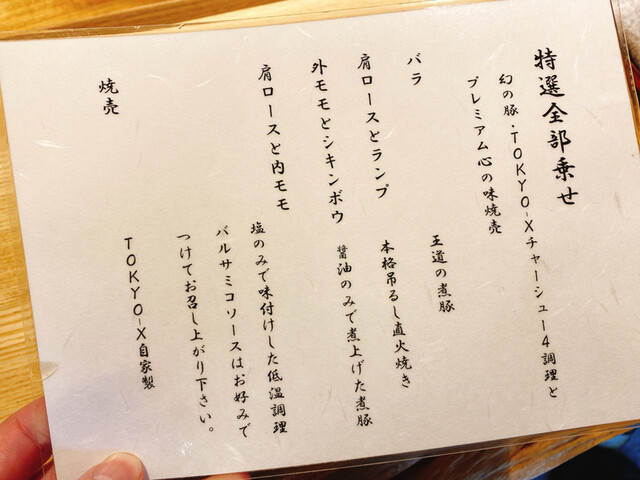 特選全部乗せ
幻の豚・TOKYO-Xチャーシュー4調理と
プレミアム心の味焼売
バラ
王道の煮豚
肩ロースとランプ
本格吊るし直火焼き
外モモとシキンボウ
醤油のみで煮上げた煮豚
肩ロースと内モモ
塩のみで味付けした低温調理
バルサミコソースはお好みで
つけてお召し上がり下さい。
焼売
TOKYO-X自家製